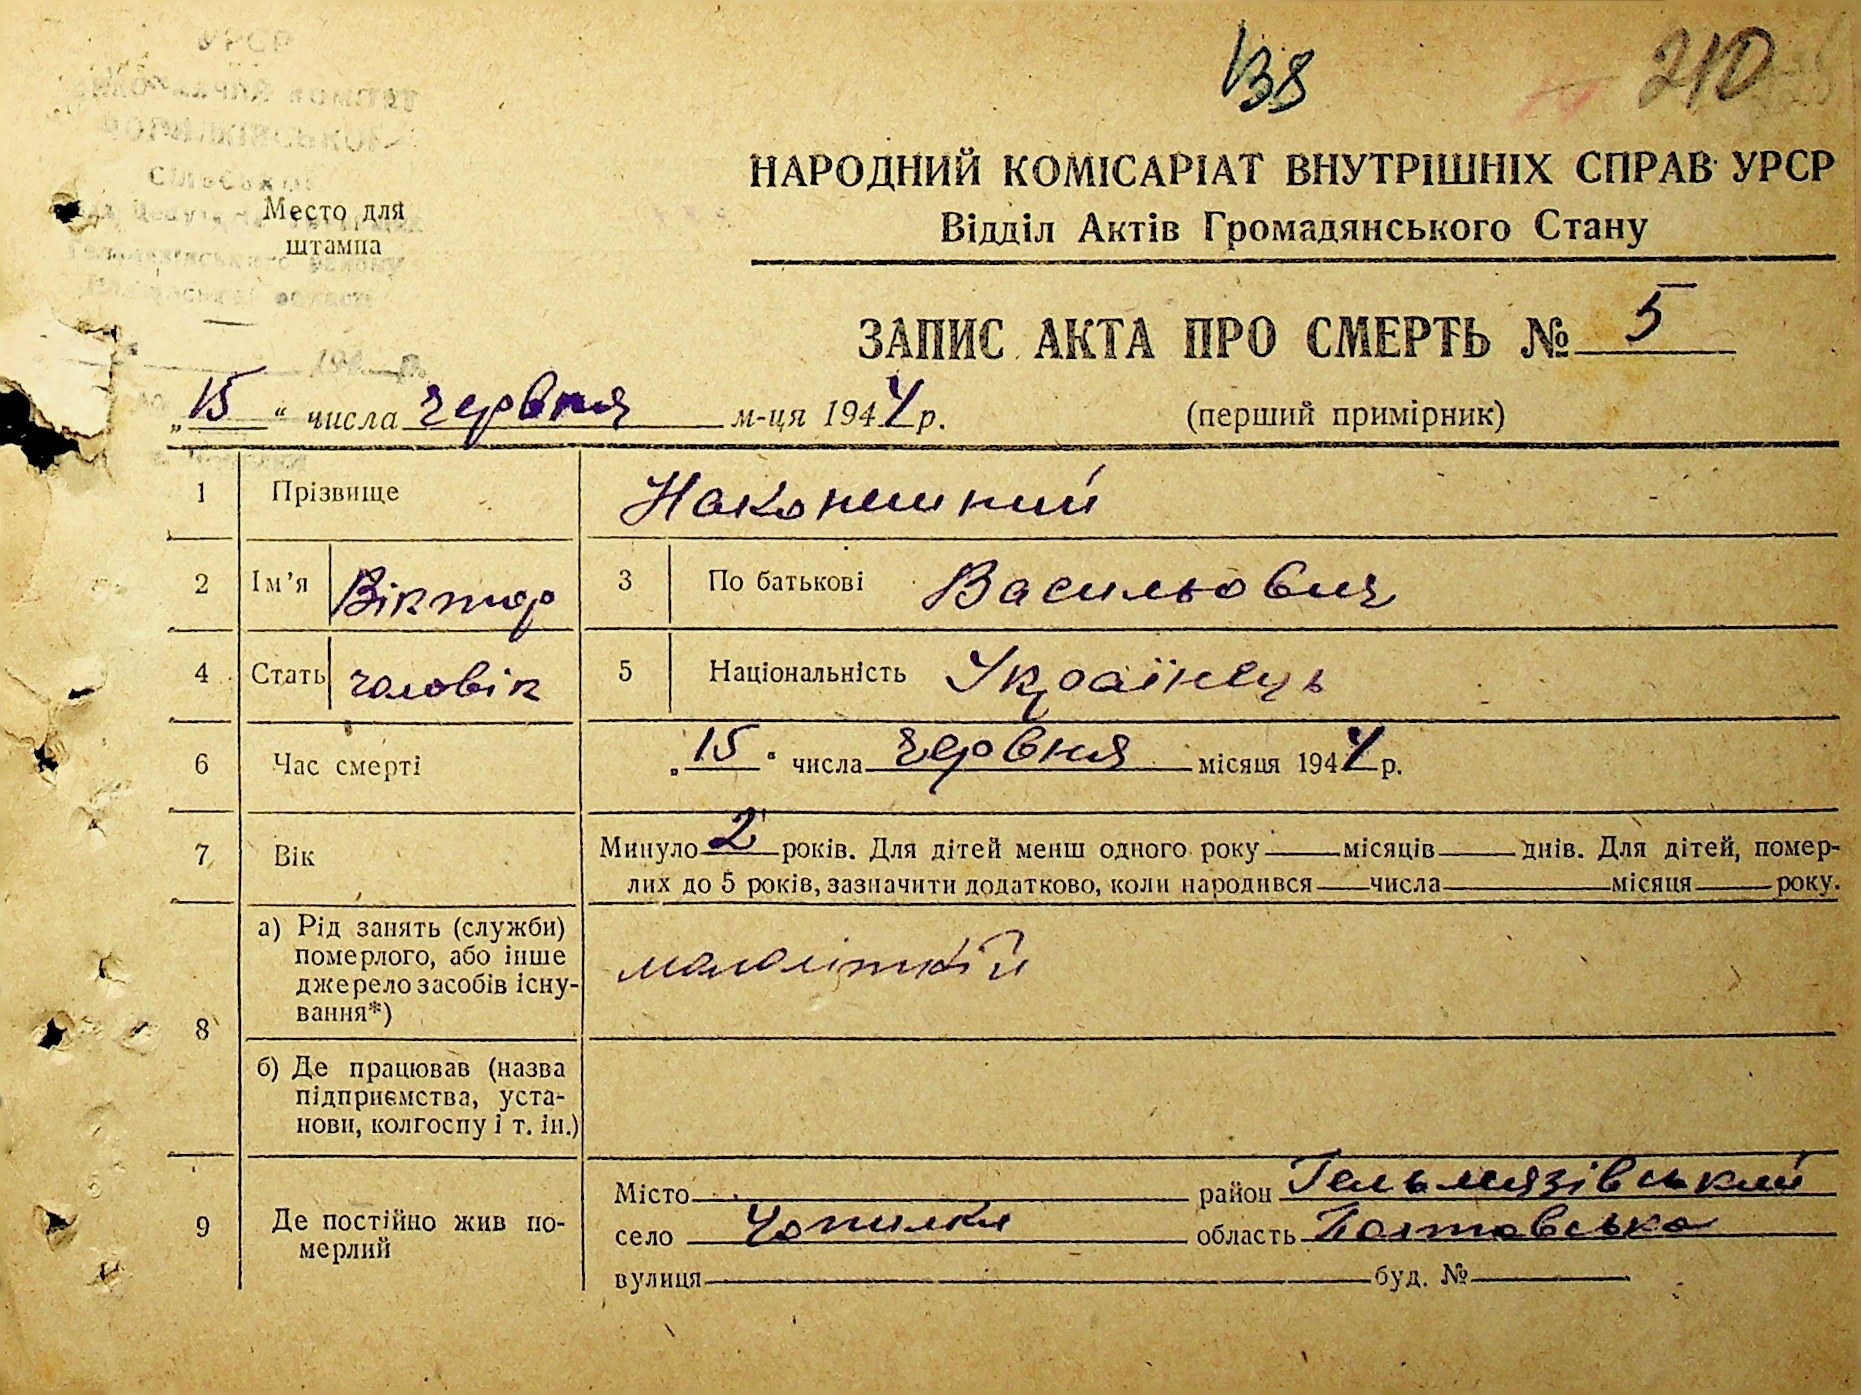 138 210
НАРОДНИЙ КОМІСАРІАТ ВНУТРІШНІХ СПРАВ УРСР
Відділ Актів Громадянського Стану
Место для
штампа
ЗАПИС АКТА ПРО СМЕРТЬ № 5
„15“ числа червня м-ця 1944 р.
(перший примірник)
1 Прізвище Наконешний
2 Ім’я Віктор 3 По батькові Васильович
4 Стать чоловік 5 Національність Українець
6 Час смерті „15“ числа червня місяця 1944 р.
7 Вік Минуло 2 років. Для дітей менш одного року місяців днів. Для дітей, помер-
лих до 5 років, зазначити додатково, коли народився числа місяця року.
8 а) Рід занять (служби)
померлого, або інше
джерело засобів існу-
вання*)
малолітній
б) Де працював (назва
підприємства, уста-
нови, колгоспу і т. ін.)
9 Де постійно жив по-
мерлий
Місто район Гельмязівський
село Чопилки область Полтавська
вулиця буд. №